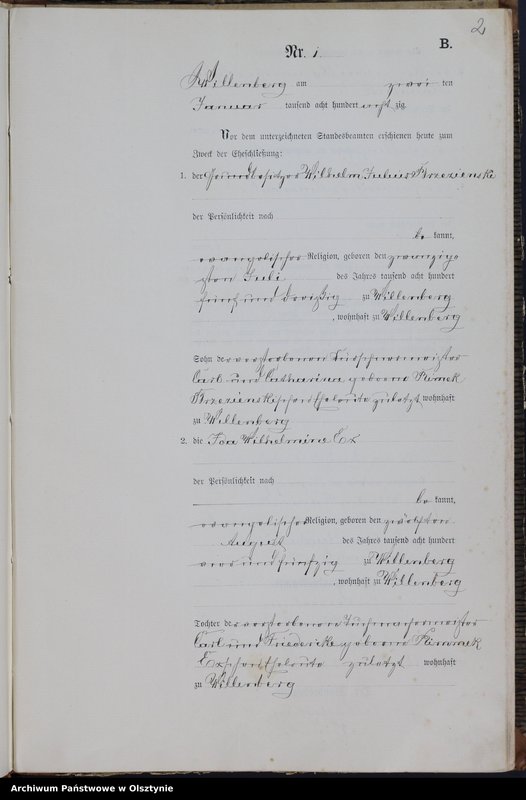 2
B.
Nr. 1
Willenberg am zwei ten
Januar tausend acht hundert acht zig.
Vor dem unterzeichneten Standesbeamten erschienen heute zum
Zweck der Eheschließung:
1. der Wilhelm Julius Brzezienski
der Persönlichkeit nach
be kannt,
evangelischer Religion, geboren den zwanzig
sten Juli des Jahres tausend acht hundert
fünf und dreißig zu Willenberg
, wohnhaft zu Willenberg
Sohn der verstorbenen
Carl und Catharina geborene
Brzezienskischen Eheleute zuletzt wohnhaft
zu Willenberg
2. die Ida Wilhelmine Ex
der Persönlichkeit nach
be kannt,
evangelischer Religion, geboren den zwölften
August des Jahres tausend acht hundert
vier und fünfzig zu Willenberg
, wohnhaft zu Willenberg
Tochter der verstorbenen Tuchmachermeister
Carl und Friederike geborene
Exschen Eheleute zuletzt wohnhaft
zu Willenberg
Archiwum Państwowe w Olsztynie